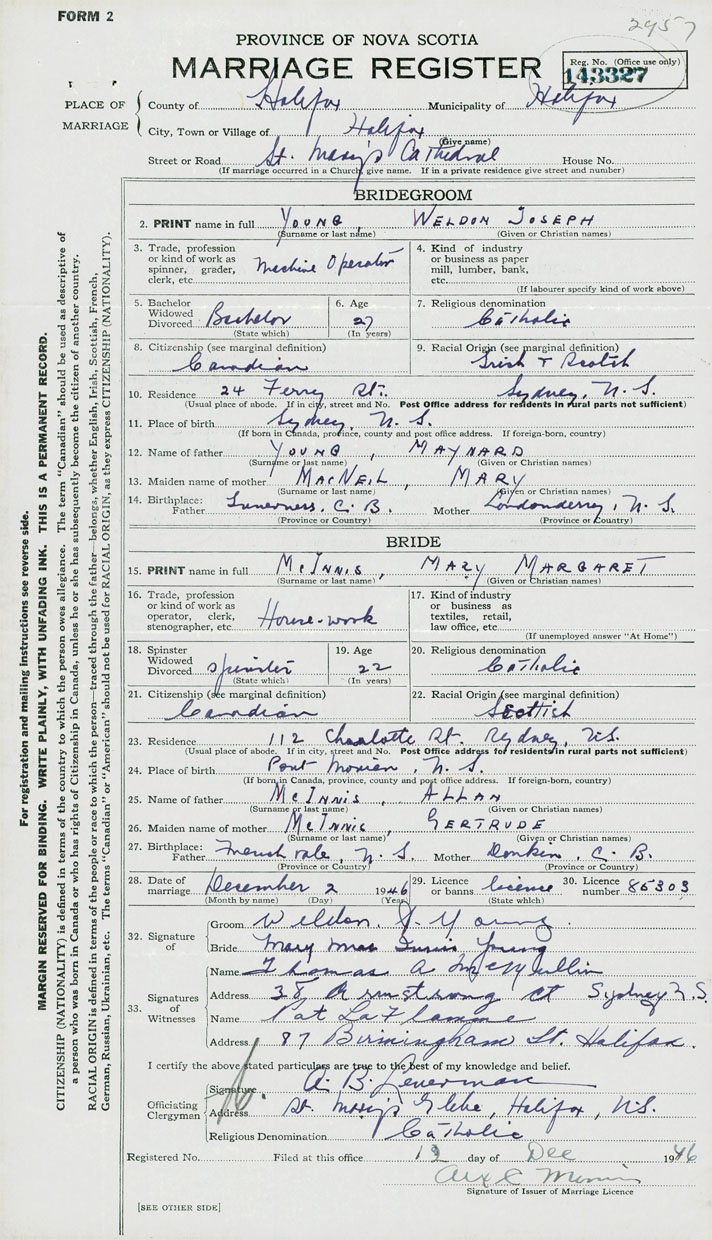 FORM 2
2957
PROVINCE OF NOVA SCOTIA
MARRIAGE REGISTER
Reg. No. (Office use only)
143327
PLACE OF MARRIAGE
County of Halifax Municipality of Halifax
City, Town or Village of Halifax
(Give name)
Street or Road St. Mary's Cathedral House No.
(If marriage occurred in a Church, give name. If in a private residence give street and number)
BRIDEGROOM
2. PRINT name in full YOUNG, WELDON JOSEPH
(Surname or last name) (Given or Christian names)
3. Trade, profession or kind of work as spinner, grader, clerk, etc. Machine Operator
4. Kind of industry or business as paper mill, lumber, bank, etc.
(If labourer specify kind of work above)
5. Bachelor Widowed Divorced Bachelor
(State which)
6. Age 27
(In years)
7. Religious denomination
Catholic
8. Citizenship (see marginal definition)
Canadian
9. Racial Origin (see marginal definition)
Irish & Scotch
10. Residence 24 Ferry St. Sydney, N.S.
(Usual place of abode. If in city, street and No. Post Office address for residents in rural parts not sufficient)
11. Place of birth Sydney, N.S.
(If born in Canada, province, county and post office address. If foreign-born, country)
12. Name of father YOUNG, MAYNARD
(Surname or last name) (Given or Christian names)
13. Maiden name of mother MACNEIL, MARY
(Surname or last name) (Given or Christian names)
14. Birthplace: Father Inverness, C.B. Mother Londonderry, N.S.
(Province or Country) (Province or Country)
BRIDE
15. PRINT name in full MCINNIS, MARY MARGARET
(Surname or last name) (Given or Christian names)
16. Trade, profession or kind of work as operator, clerk, stenographer, etc. House-work
17. Kind of industry or business as textiles, retail, law office, etc.
(If unemployed answer "At Home")
18. Spinster Widowed Divorced spinster
(State which)
19. Age 22
(In years)
20. Religious denomination
Catholic
21. Citizenship (see marginal definition)
Canadian
22. Racial Origin (see marginal definition)
Scottish
23. Residence 112 Charlotte St. Sydney, N.S.
(Usual place of abode. If in city, street and No. Post Office address for residents in rural parts not sufficient)
24. Place of birth Port Morien, N.S.
(If born in Canada, province, county and post office address. If foreign-born, country)
25. Name of father MCINNIS, ALLAN
(Surname or last name) (Given or Christian names)
26. Maiden name of mother MCINNIS, GERTRUDE
(Surname or last name) (Given or Christian names)
27. Birthplace: Father French vale, N.S. Mother Donkin, C.B.
(Province or Country) (Province or Country)
28. Date of marriage December 2 1946
(Month by name) (Day) (Year)
29. Licence or banns license
(State which)
30. Licence number 85303
32. Signature of
Groom Weldon J Young
Bride Mary Mac Innis Young
33. Signatures of Witnesses
Name Thomas A McMullin
Address 38 Armstrong Ct Sydney N.S.
Name Pat LaFlamme
Address 87 Birmingham St. Halifax.
I certify the above stated particulars are true to the best of my knowledge and belief.
Officiating Clergyman
Signature A. B. Leverman
Address St. Mary's Glebe, Halifax, N.S.
Religious Denomination Catholic
Registered No. Filed at this office 12 day of Dec 1946
Signature of Issuer of Marriage Licence
[SEE OTHER SIDE]
For registration and mailing instructions see reverse side.
MARGIN RESERVED FOR BINDING. WRITE PLAINLY, WITH UNFADING INK. THIS IS A PERMANENT RECORD.
CITIZENSHIP (NATIONALITY) is defined in terms of the country to which the person owes allegiance. The term "Canadian" should be used as descriptive of
a person who was born in Canada or who has rights of Citizenship in Canada, unless he or she has subsequently become the citizen of another country.
RACIAL ORIGIN is defined in terms of the people or race to which the person—traced through the father—belongs, whether English, Irish, Scottish, French,
German, Russian, Ukrainian, etc. The terms "Canadian" or "American" should not be used for RACIAL ORIGIN, as they express CITIZENSHIP (NATIONALITY).